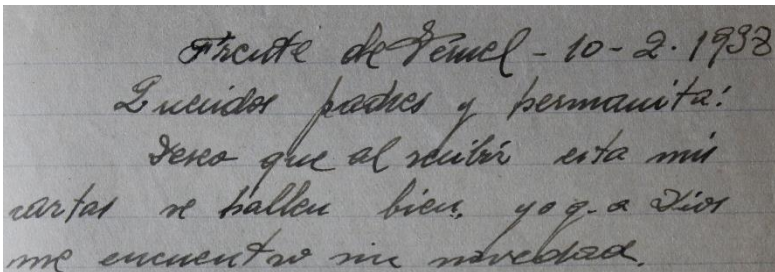 Frente de Teruel - 10-2-1938
Queridos padres y hermanita:
Deseo que al recibir esta mis
cartas se hallen bien, yo g. a Dios
me encuentro sin novedad.